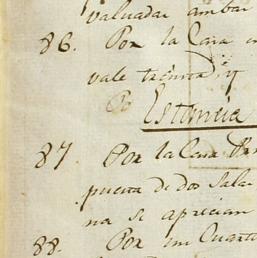 valuadas ambas
86. Por la Casa
vale treinta y
Estancia
87. Por la Casa
puerta de dos Salas
na se aprecian
88. Por un Quarto